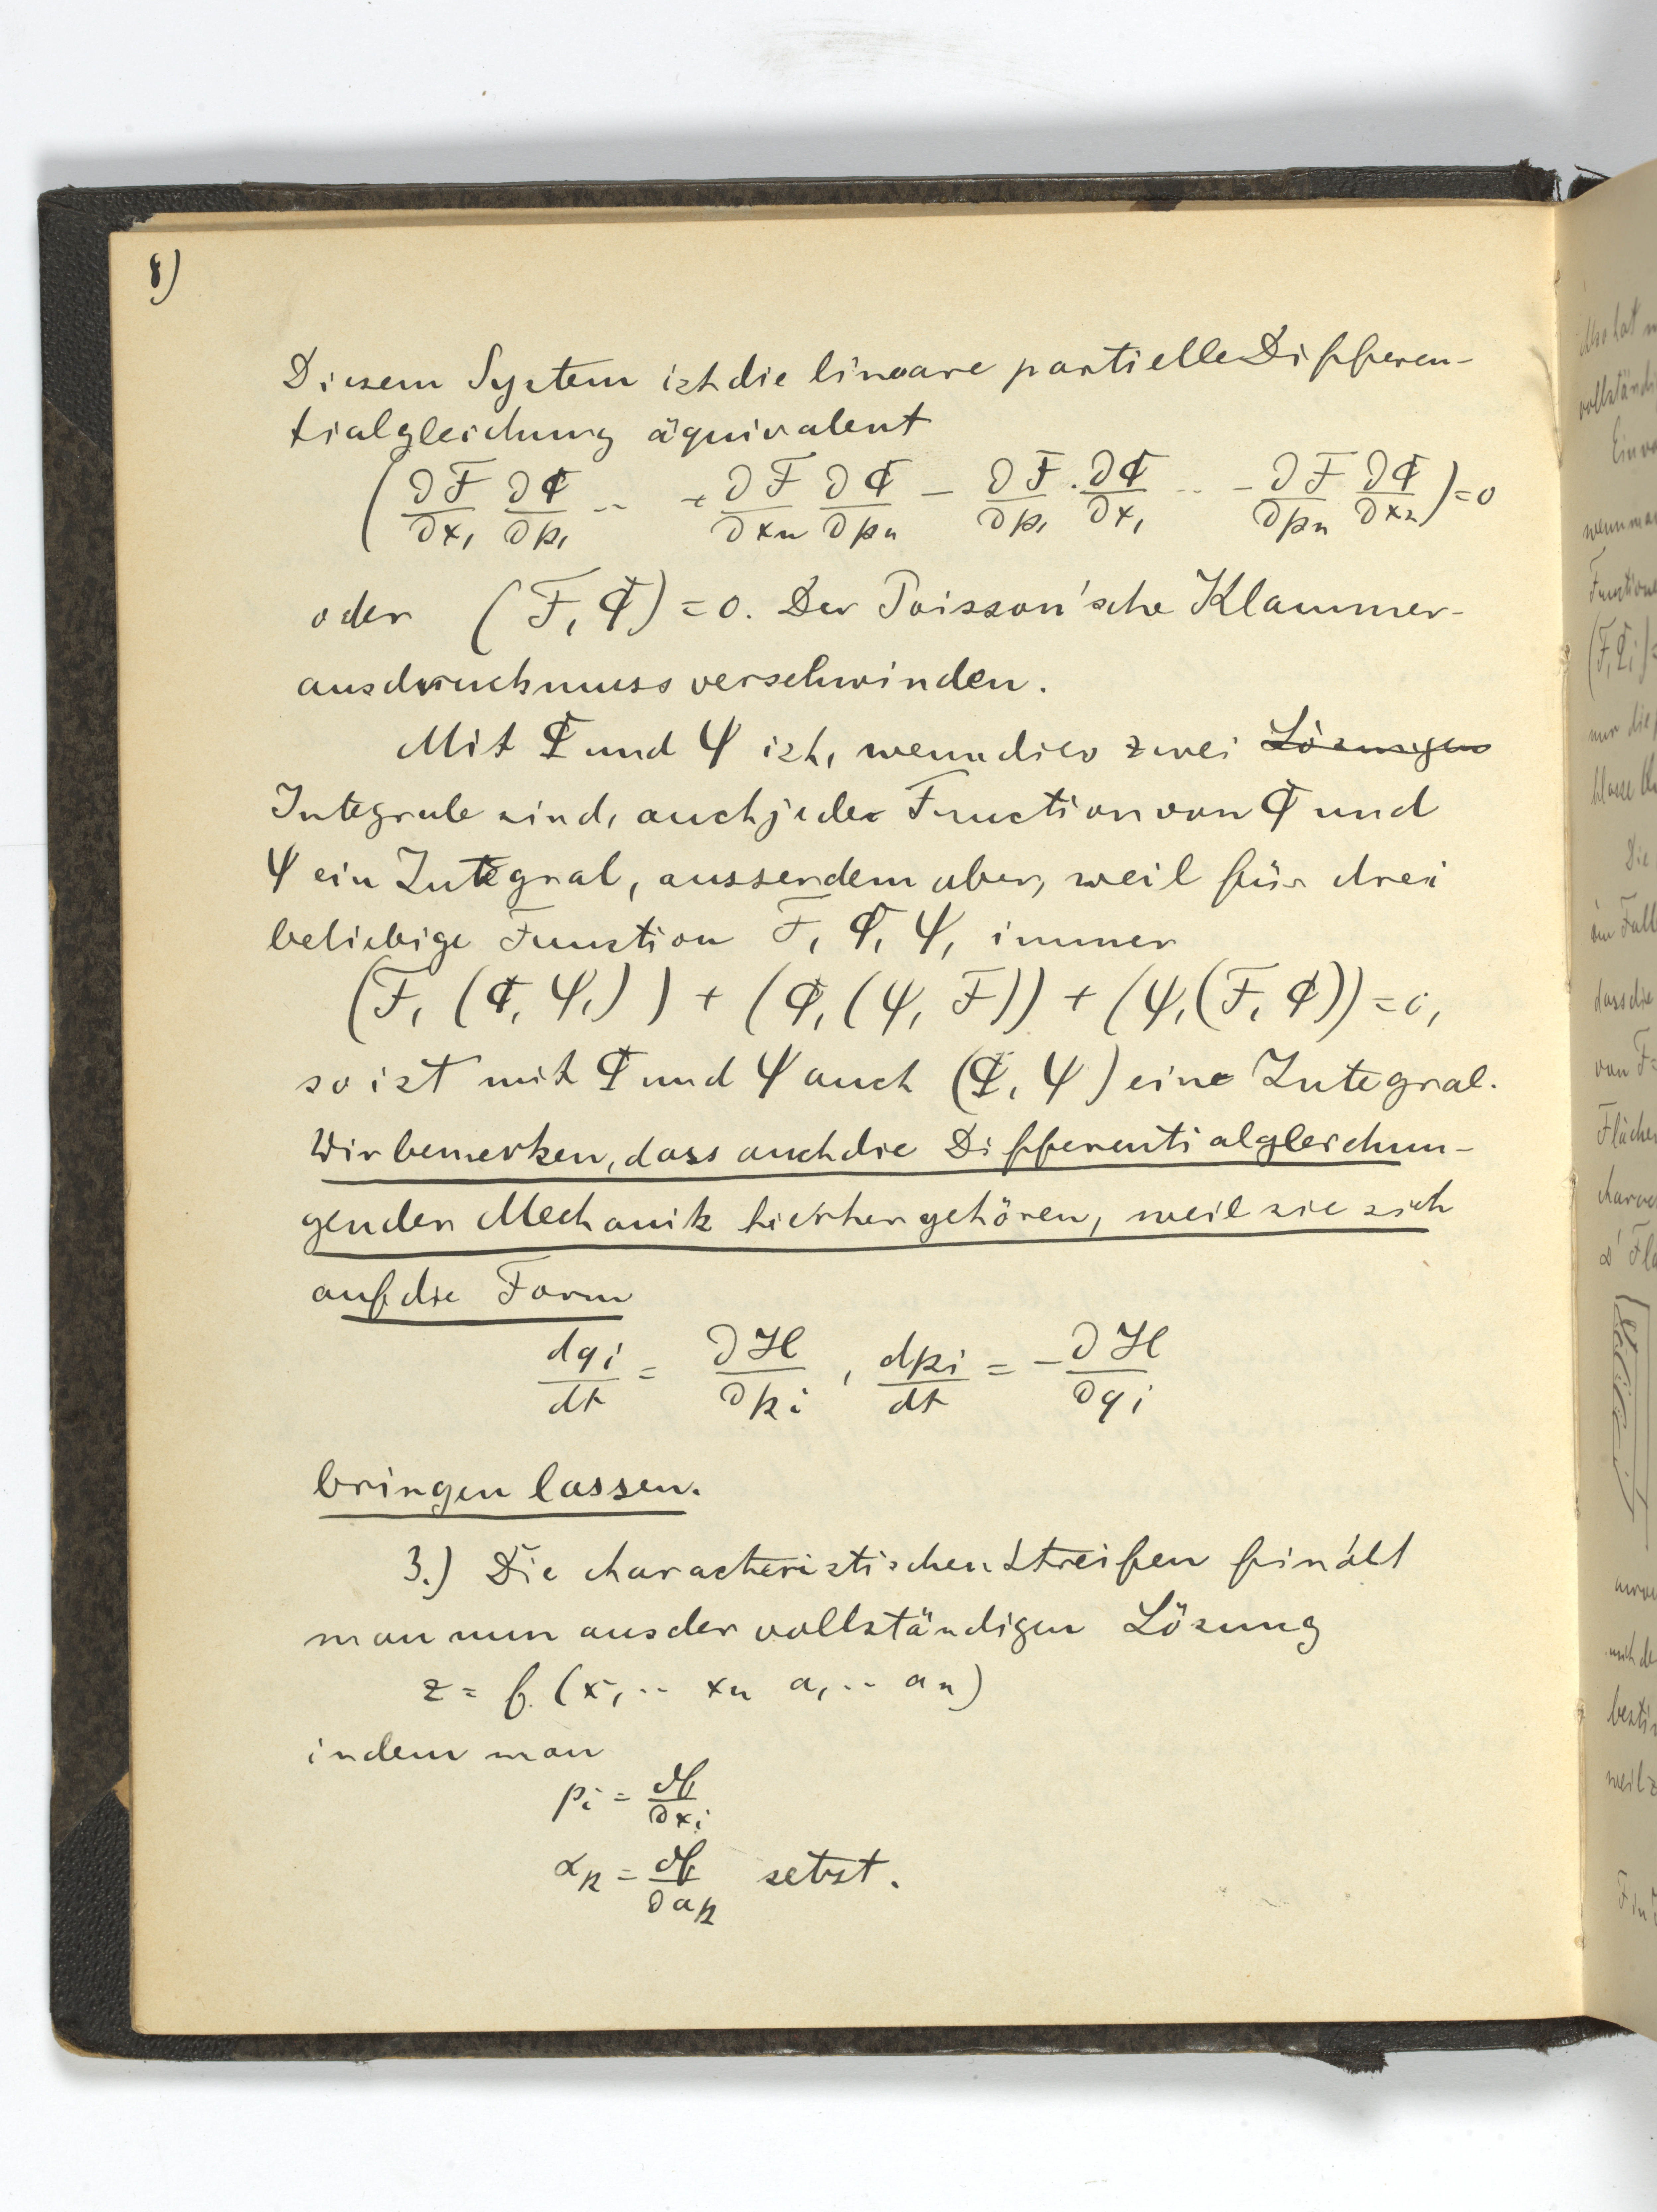 8)
Diesem System ist die lineare partielle Differen-
tialgleichung äquivalent
(∂F/∂x₁ ∂Φ/∂p₁ ·· + ∂F/∂xₙ ∂Φ/∂pₙ − ∂F/∂p₁ · ∂Φ/∂x₁ ·· − ∂F/∂pₙ ∂Φ/∂xₙ) = 0
oder (F, Φ) = 0. Der Poisson'sche Klammer-
ausdruck muss verschwinden.
Mit Φ und Ψ ist, wenn dies zwei Lösungen
Integrale sind, auch jede Function von Φ und
Ψ ein Integral, ausserdem aber, weil für drei
beliebige Funktion F, Φ, Ψ, immer
(F, (Φ, Ψ,)) + (Φ, (Ψ, F)) + (Ψ, (F, Φ)) = 0,
so ist mit Φ und Ψ auch (Φ, Ψ) ein Integral.
Wir bemerken, dass auch die Differentialgleichun-
gen der Mechanik hierher gehören, weil sie sich
auf die Form
dqᵢ/dt = ∂H/∂pᵢ , dpᵢ/dt = − ∂H/∂qᵢ
bringen lassen.
3.) Die characteristischen Streifen findet
man nun aus der vollständigen Lösung
z = f (x₁ ·· xₙ a₁ ·· aₙ)
indem man
pᵢ = ∂f/∂xᵢ
αₖ = ∂f/∂aₖ setzt.